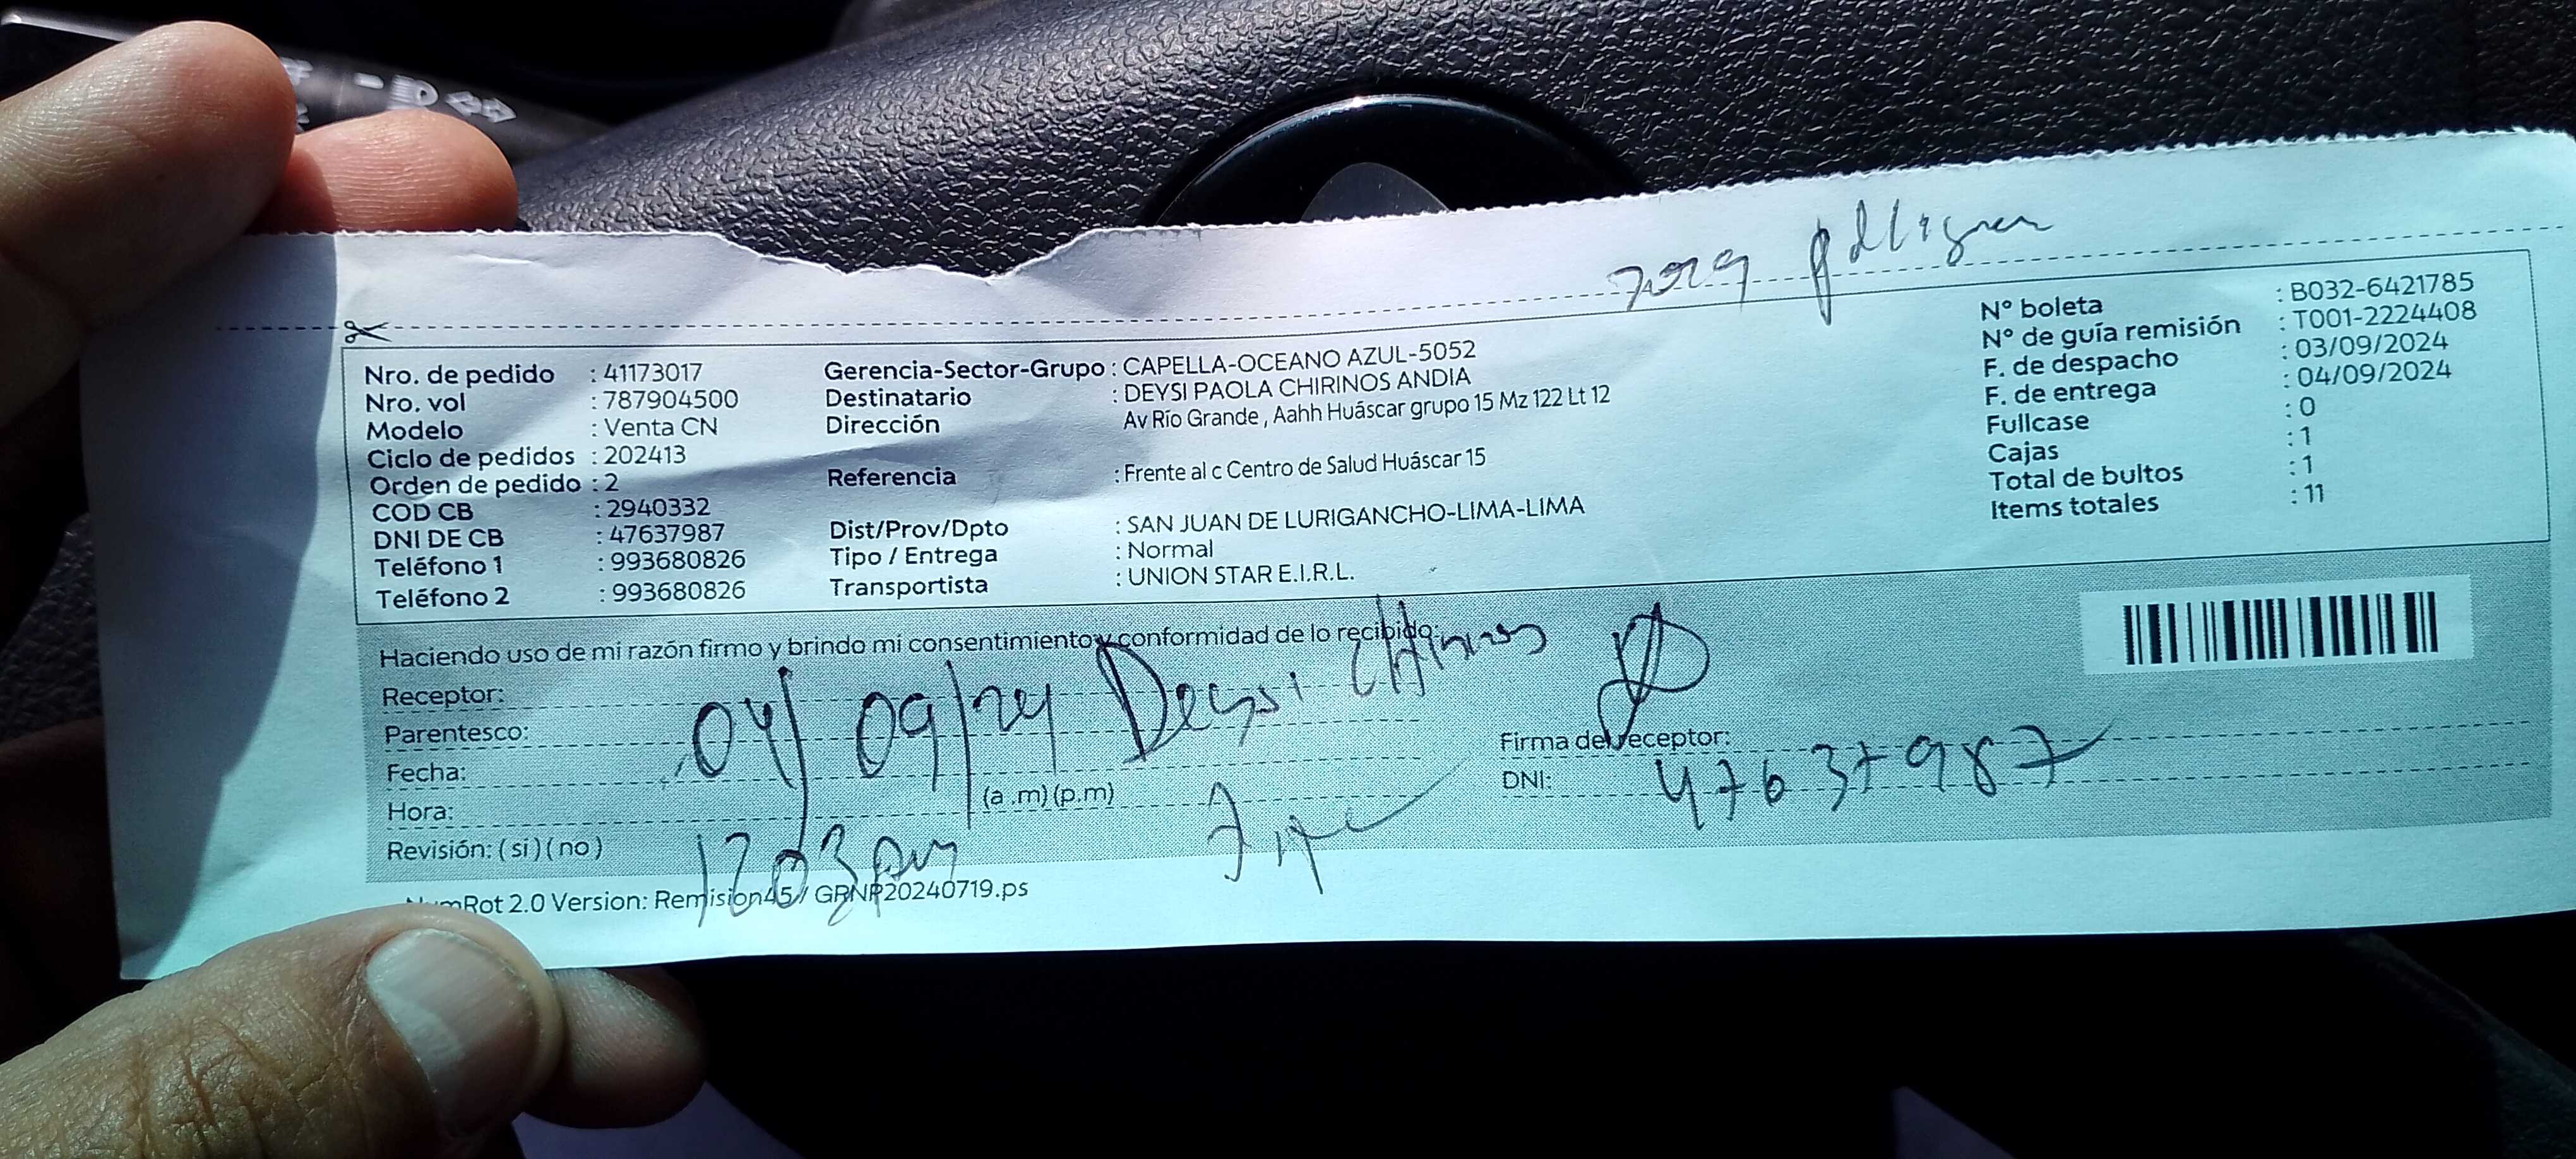 Nro. de pedido : 41173017
Nro. vol : 787904500
Modelo : Venta CN
Ciclo de pedidos : 202413
Orden de pedido : 2
COD CB : 2940332
DNI DE CB : 47637987
Teléfono 1 : 993680826
Teléfono 2 : 993680826
Gerencia-Sector-Grupo : CAPELLA-OCEANO AZUL-5052
Destinatario : DEYSI PAOLA CHIRINOS ANDIA
Dirección Av Río Grande , Aahh Huáscar grupo 15 Mz 122 Lt 12
Referencia : Frente al c Centro de Salud Huáscar 15
Dist/Prov/Dpto : SAN JUAN DE LURIGANCHO-LIMA-LIMA
Tipo / Entrega : Normal
Transportista : UNION STAR E.I.R.L.
N° boleta : B032-6421785
N° de guía remisión : T001-2224408
F. de despacho : 03/09/2024
F. de entrega : 04/09/2024
Fullcase : 0
Cajas : 1
Total de bultos : 1
Items totales : 11
Haciendo uso de mi razón firmo y brindo mi consentimiento y conformidad de lo recibido:
Receptor: Deysi Chirinos
Parentesco:
Fecha: 04/09/24
Hora: (a .m) (p.m)
1203 pm
Revisión: ( si ) ( no )
Firma del receptor:
DNI: 47637987
Rot 2.0 Version: Remision45/ GRNP20240719.ps